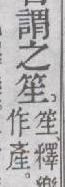 謂之笙。
笙、釋樂
作產。